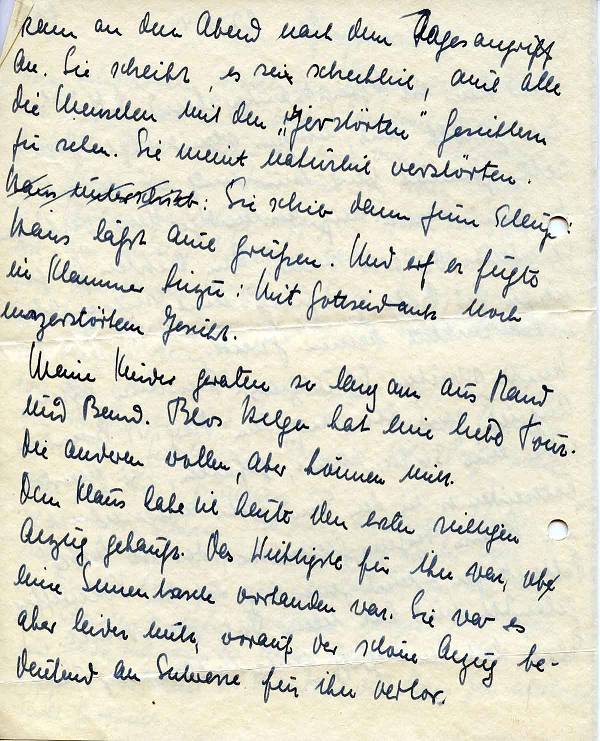 kam an dem Abend nach dem Tagesangriff
an. Sie schreibt, es sei schrecklich, auch alle
die Menschen mit den „zerstörten“ Gesichtern
zu sehen. Sie meint natürlich verstörten.
Hans unterschrieb: Sie schrieb dann zum Schluß:
Hans läßt auch grüßen. Und er fügte
in Klammer hinzu: Mit Gottseidank noch
unzerstörtem Gesicht.
Meine Kinder geraten so langsam aus Rand
und Band. Blos Helga hat eine liebe Tour.
Die anderen wollen, aber können nicht.
Dem Klaus habe ich heute den ersten richtigen
Anzug gekauft. Das Wichtigste für ihn war, ob
eine Innentasche vorhanden war. Sie war es
aber leider nicht, worauf der schöne Anzug be-
deutend an Interesse für ihn verlor.